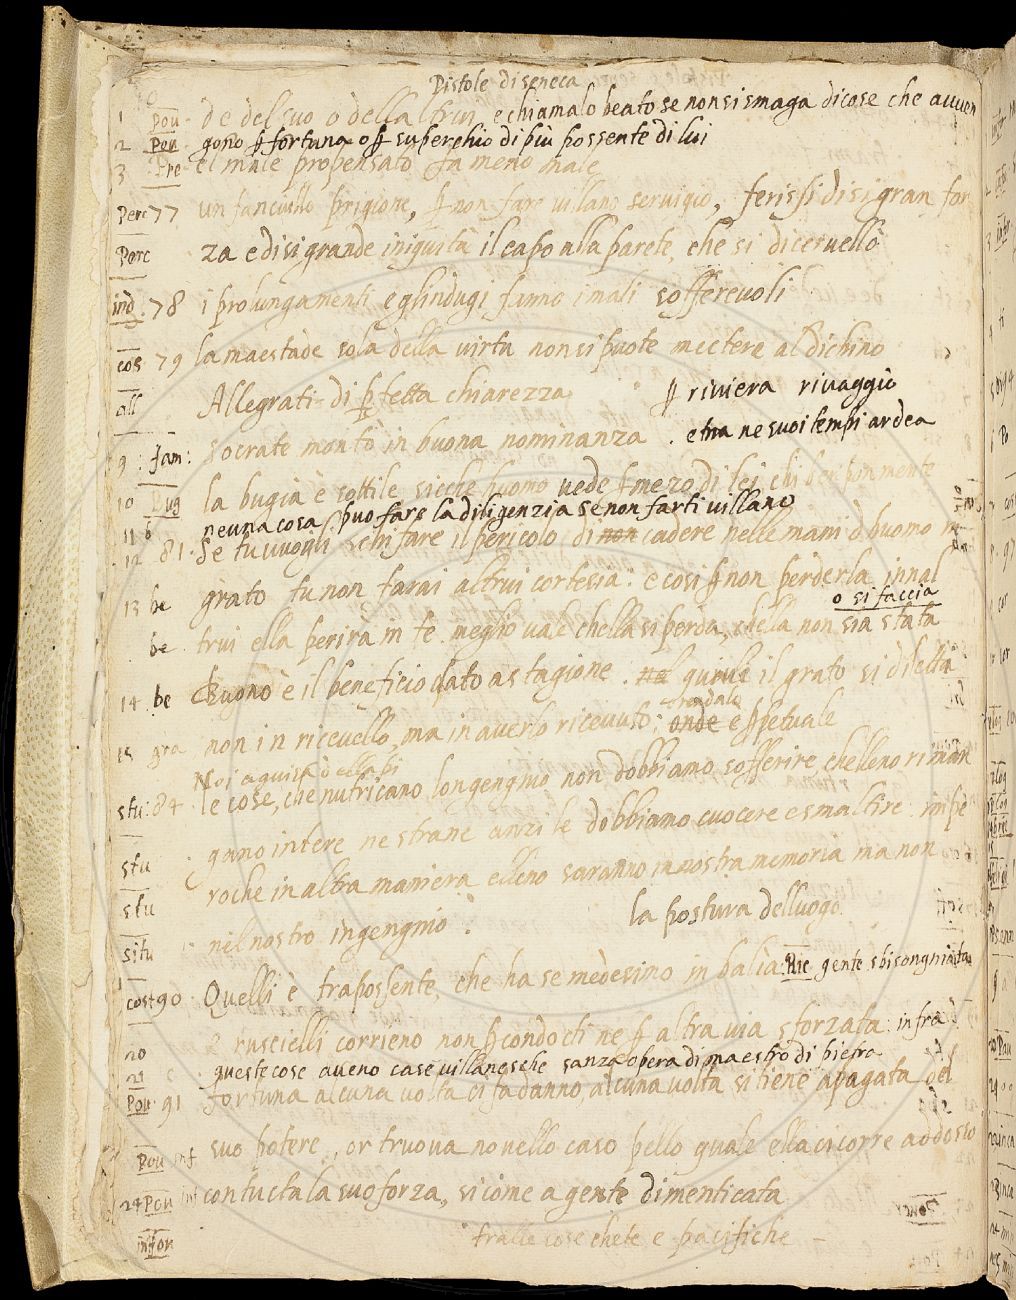 Pistole di seneca
1 pou- de del suo o della ltrui e chiamalo beato se non si smaga dicose che avven
2 Pou gono ꝑ fortuna o ꝑ superchio di più possente di lui
3 Fre el male propensato fa meno male
Perc 77 un fanciullo prigione, ꝑ non fare villano servigio, ferissi disi gran for
Perc za e disi grande iniquità il capo alla parete, che si dicervellò
ind. 78 i prolungamenti e glindugi fanno i mali sofferevoli
cos 79 la maestade sola della virtu non si puote mectere al dichino
all Allegrati di ꝑfetta chiarezza ꝑ riviera rivaggio
9 fam: socrate montò in buona nominanza . etna ne suoi tempi ardea
10 Bug la bugia è sottile sicche huomo vede ꝑ mezo di lei chi ben pon mente
11 b neuna cosa può fare la diligenzia se non farti villano
12 81. Se tu vuogli schifare il pericolo di non cadere nelle mani d huomo in
13 be grato tu non farai altrui cortesia: e cosi ꝑ non perderla in nal
o si faccia
be trui ella perira in te. meglio vale chella si perda, chella non sia stata
14. be Buono è il beneficio dato a stagione. quivi il grato si diletta
15 gra non in ricevello, ma in averlo ricevuto: onde e ꝑpetuale
Noi a guisa della pi
stu: 84 le cose, che nutricano longengnio non dobbiamo sofferire chelleno riman
stu gano intere ne strane anzi le dobbiamo cuocere e smaltire. impe
stu roche in altra maniera elleno saranno in nostra memoria ma non
situ nel nostro ingengnio: la postura del luogo
cost 90 Quelli è trapossente, che ha se medesimo in balia: Ric gente sbisongniata
20 2 ruscielli corrieno non ꝑ condocti ne ꝑ altra via sforzata: infra
21 queste cose aveno case villanesche sanza opera di maestro di pietra
Pou 91 fortuna alcuna volta ci fa danno, alcuna volta si tiene apagata del
Pou inf suo potere, or truova novello caso pello quale ella ci corre addosso
24 Pou inf con tucta la suo forza, si come a gente dimenticata
infor tralle cose chete e pacifiche -